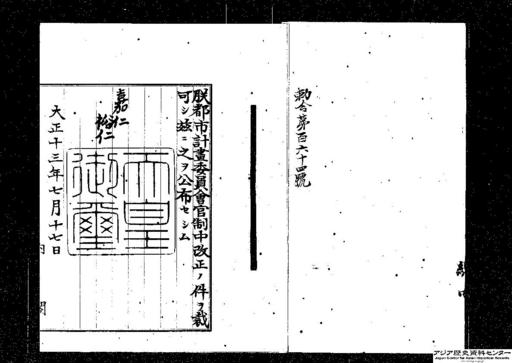 勅令第百六十四號
朕都市計畫委員會官制中改正ノ件ヲ裁
可シ茲ニ之ヲ公布セシム
嘉仁
裕仁
天皇
御璽
大正十三年七月十七日
アジア歴史資料センター
Japan Center for Asian Historical Records